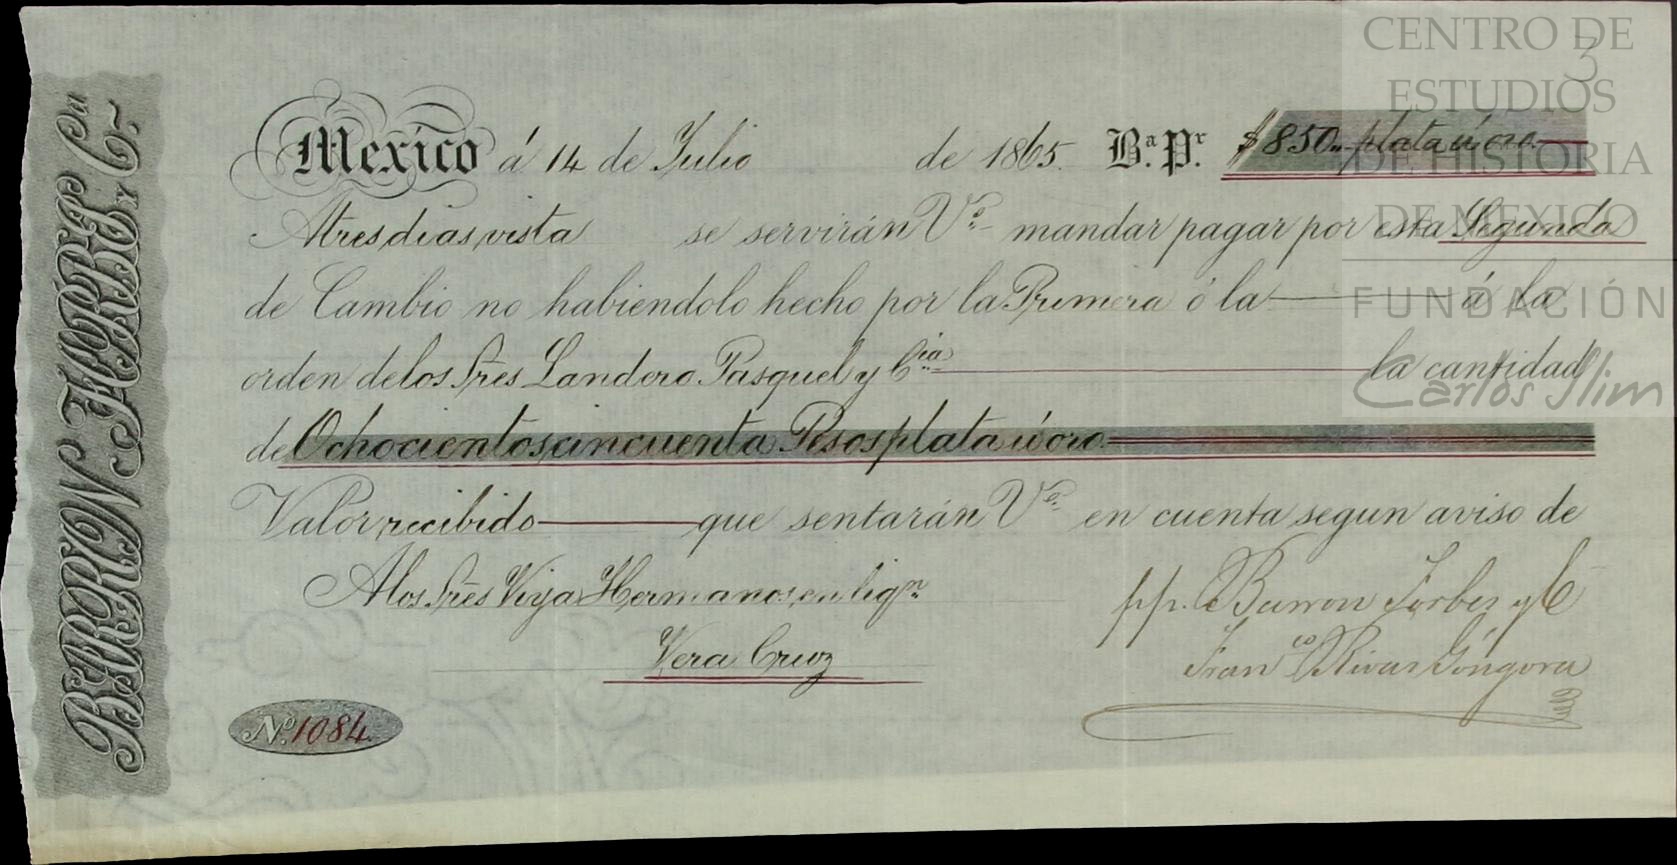 BARRON, FORBES y Cª
CENTRO DE
ESTUDIOS
DE HISTORIA
DE MEXICO
FUNDACIÓN
Carlos Slim
3
Mexico á 14 de Julio de 1865. Bª. Pr. $850.. plata ú oro.
A tres dias vista se servirán Vs. mandar pagar por esta Segunda
de Cambio no habiendolo hecho por la Primera ó la á la
orden de los Sres Landero Pasquel y Cia. la cantidad
de Ochocientos cincuenta Pesos plata ú oro.
Valor recibido que sentarán Vs. en cuenta segun aviso de
A los Sres Viya Hermanos en liqn.
Vera Cruz
pp. Barron Forbes y C
Franco Rivas Góngora
No. 1084.